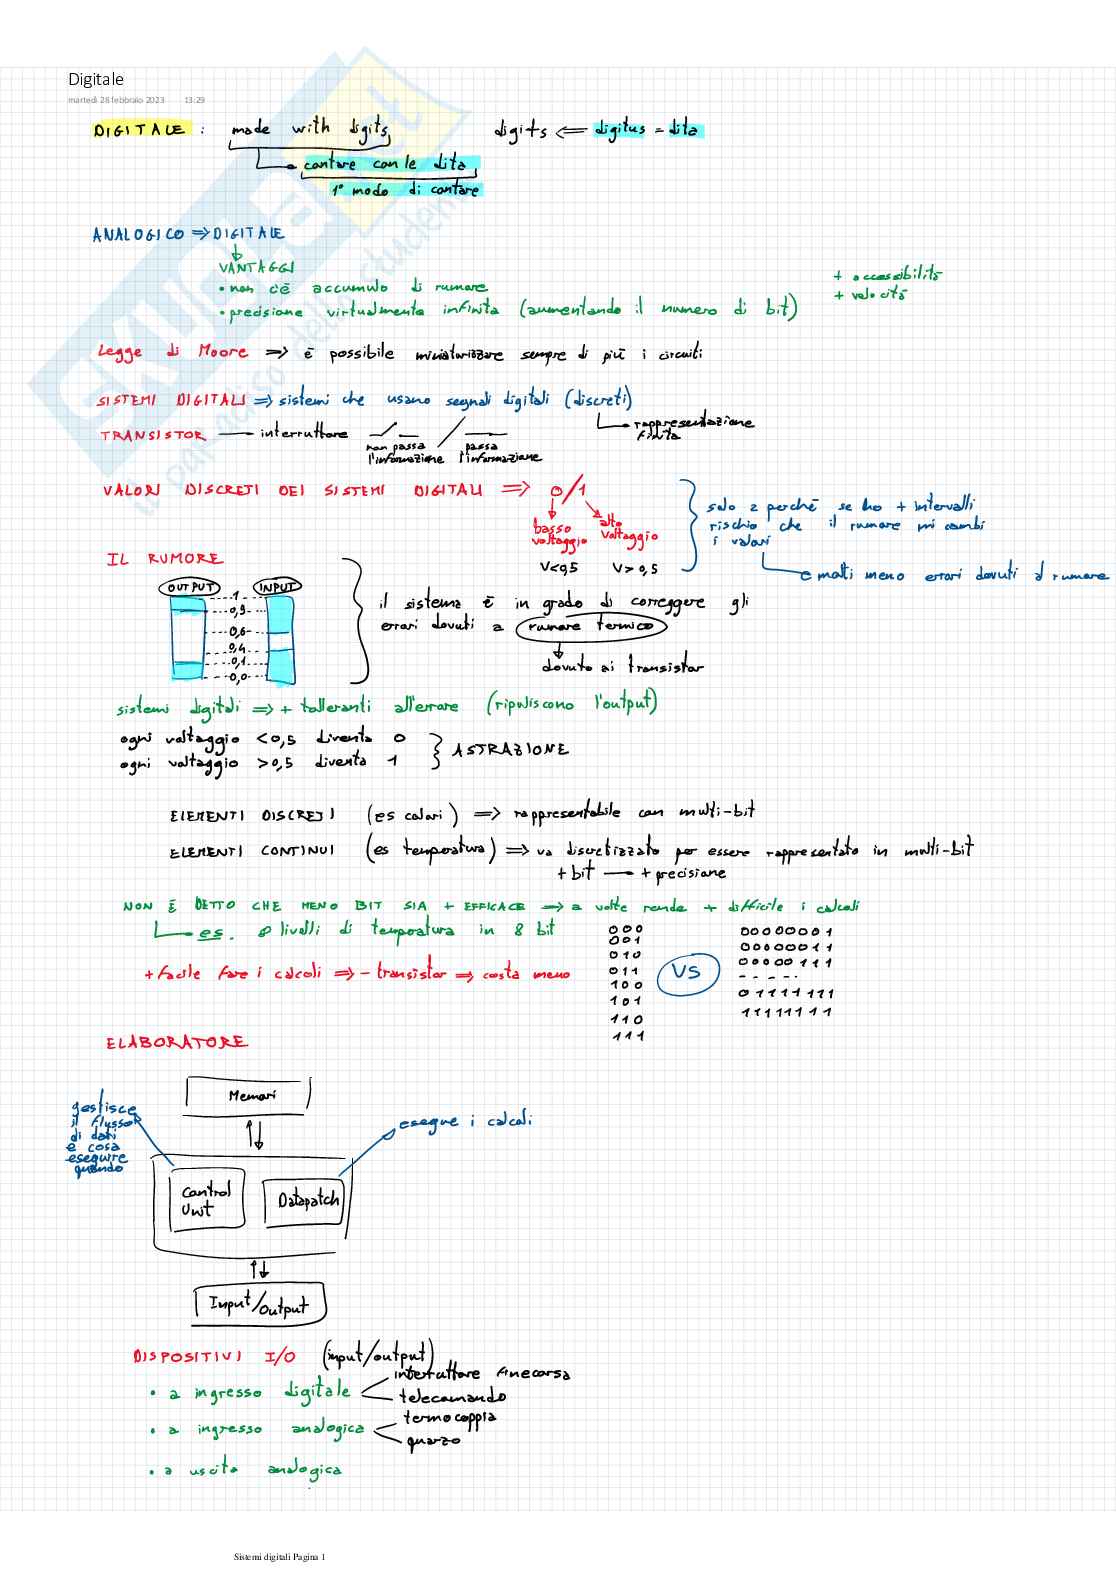 Digitale
martedì 28 febbraio 2023 13:29
DIGITALE : made with digits digits <= digitus = dita
contare con le dita
1° modo di contare
ANALOGICO => DIGITALE
VANTAGGI
• non c'è accumulo di rumore
• precisione virtualmente infinita (aumentando il numero di bit)
+ accessibilità
+ velocità
Legge di Moore => è possibile miniaturizzare sempre di più i circuiti
SISTEMI DIGITALI => sistemi che usano segnali digitali (discreti)
rappresentazione
finita
TRANSISTOR — interruttore
non passa
l'informazione
passa
l'informazione
VALORI DISCRETI DEI SISTEMI DIGITALI => 0/1
basso
voltaggio
alto
voltaggio
V<0,5 V>0,5
solo 2 perchè se ho + intervalli
rischio che il rumore mi cambi
i valori
e molti meno errori dovuti al rumore
IL RUMORE
OUTPUT INPUT
1
0,9
0,6
0,4
0,1
0,0
il sistema è in grado di correggere gli
errori dovuti a rumore termico
dovuto ai transistor
sistemi digitali => + tolleranti all'errore (ripuliscono l'output)
ogni voltaggio <0,5 diventa 0
ogni voltaggio >0,5 diventa 1
ASTRAZIONE
ELEMENTI DISCRETI (es colori) => rappresentabile con multi-bit
ELEMENTI CONTINUI (es temperatura) => va discretizzato per essere rappresentato in multi-bit
+ bit → + precisione
NON È DETTO CHE MENO BIT SIA + EFFICACE => a volte rende + difficile i calcoli
es. 8 livelli di temperatura in 8 bit
+ facile fare i calcoli => - transistor => costa meno
000
001
010
011
100
101
110
111
VS
00000001
00000011
00000111
- - - - -
01111111
11111111
ELABORATORE
Memori
gestisce
il flusso
di dati
e cosa
eseguire
quando
esegue i calcoli
Control
Unit
Datapatch
Input/output
DISPOSITIVI I/O (input/output)
• a ingresso digitale
interruttore finecorsa
telecomando
• a ingresso analogica
termocoppia
quarzo
• a uscita analogica
Sistemi digitali Pagina 1